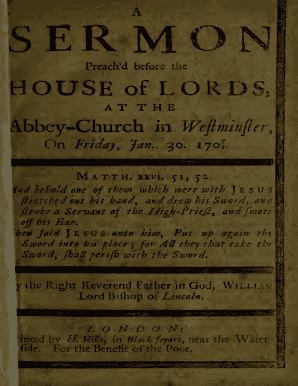 A
SERMON
Preach'd before the
HOUSE of LORDS,
AT THE
Abbey-Church in Weſtminſter,
On Friday, Jan. 30. 170⅞.
MATTH. xxvi. 51, 52.
And behold one of them which were with JESUS
ſtretched out his hand, and drew his Sword, and
ſtroke a Servant of the High-Prieſt, and ſmote
off his Ear.
hen ſaid JESUS unto him, Put up again thy
Sword into his place; for All they that take the
Sword, ſhall periſh with the Sword.
y the Right Reverend Father in God, WILLIAM
Lord Biſhop of Lincoln.
LONDON:
inted by H. Hills, in Black-fryars, near the Water-
ſide. For the Benefit of the Poor.